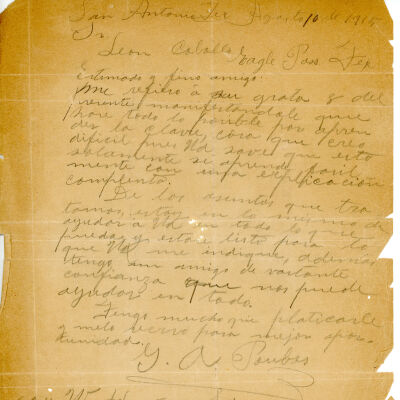 San Antonio Tex Agosto 10 de 1915
Sr
Leon Caballo Eagle Pass Tex
Estimado y fino amigo:
Me refiero a su grata 8 del
presente manifestandole que
hare todo lo posible por apren
der la clave, cosa que creo
dificil pues Ud save que esto
solamente se aprende facil
mente con una explicacion
completa.
De los asuntos que tra
tamos, estoy en lo mismo de
ayudar a Ud en todo lo que
pueda y estare listo para lo
que Ud me indique, ademas
tengo un amigo de vastante
confianza que nos puede
ayudar en todo.
Tengo mucho que platicarle
y melo recervo para mejor opor
tunidad.
G. A.